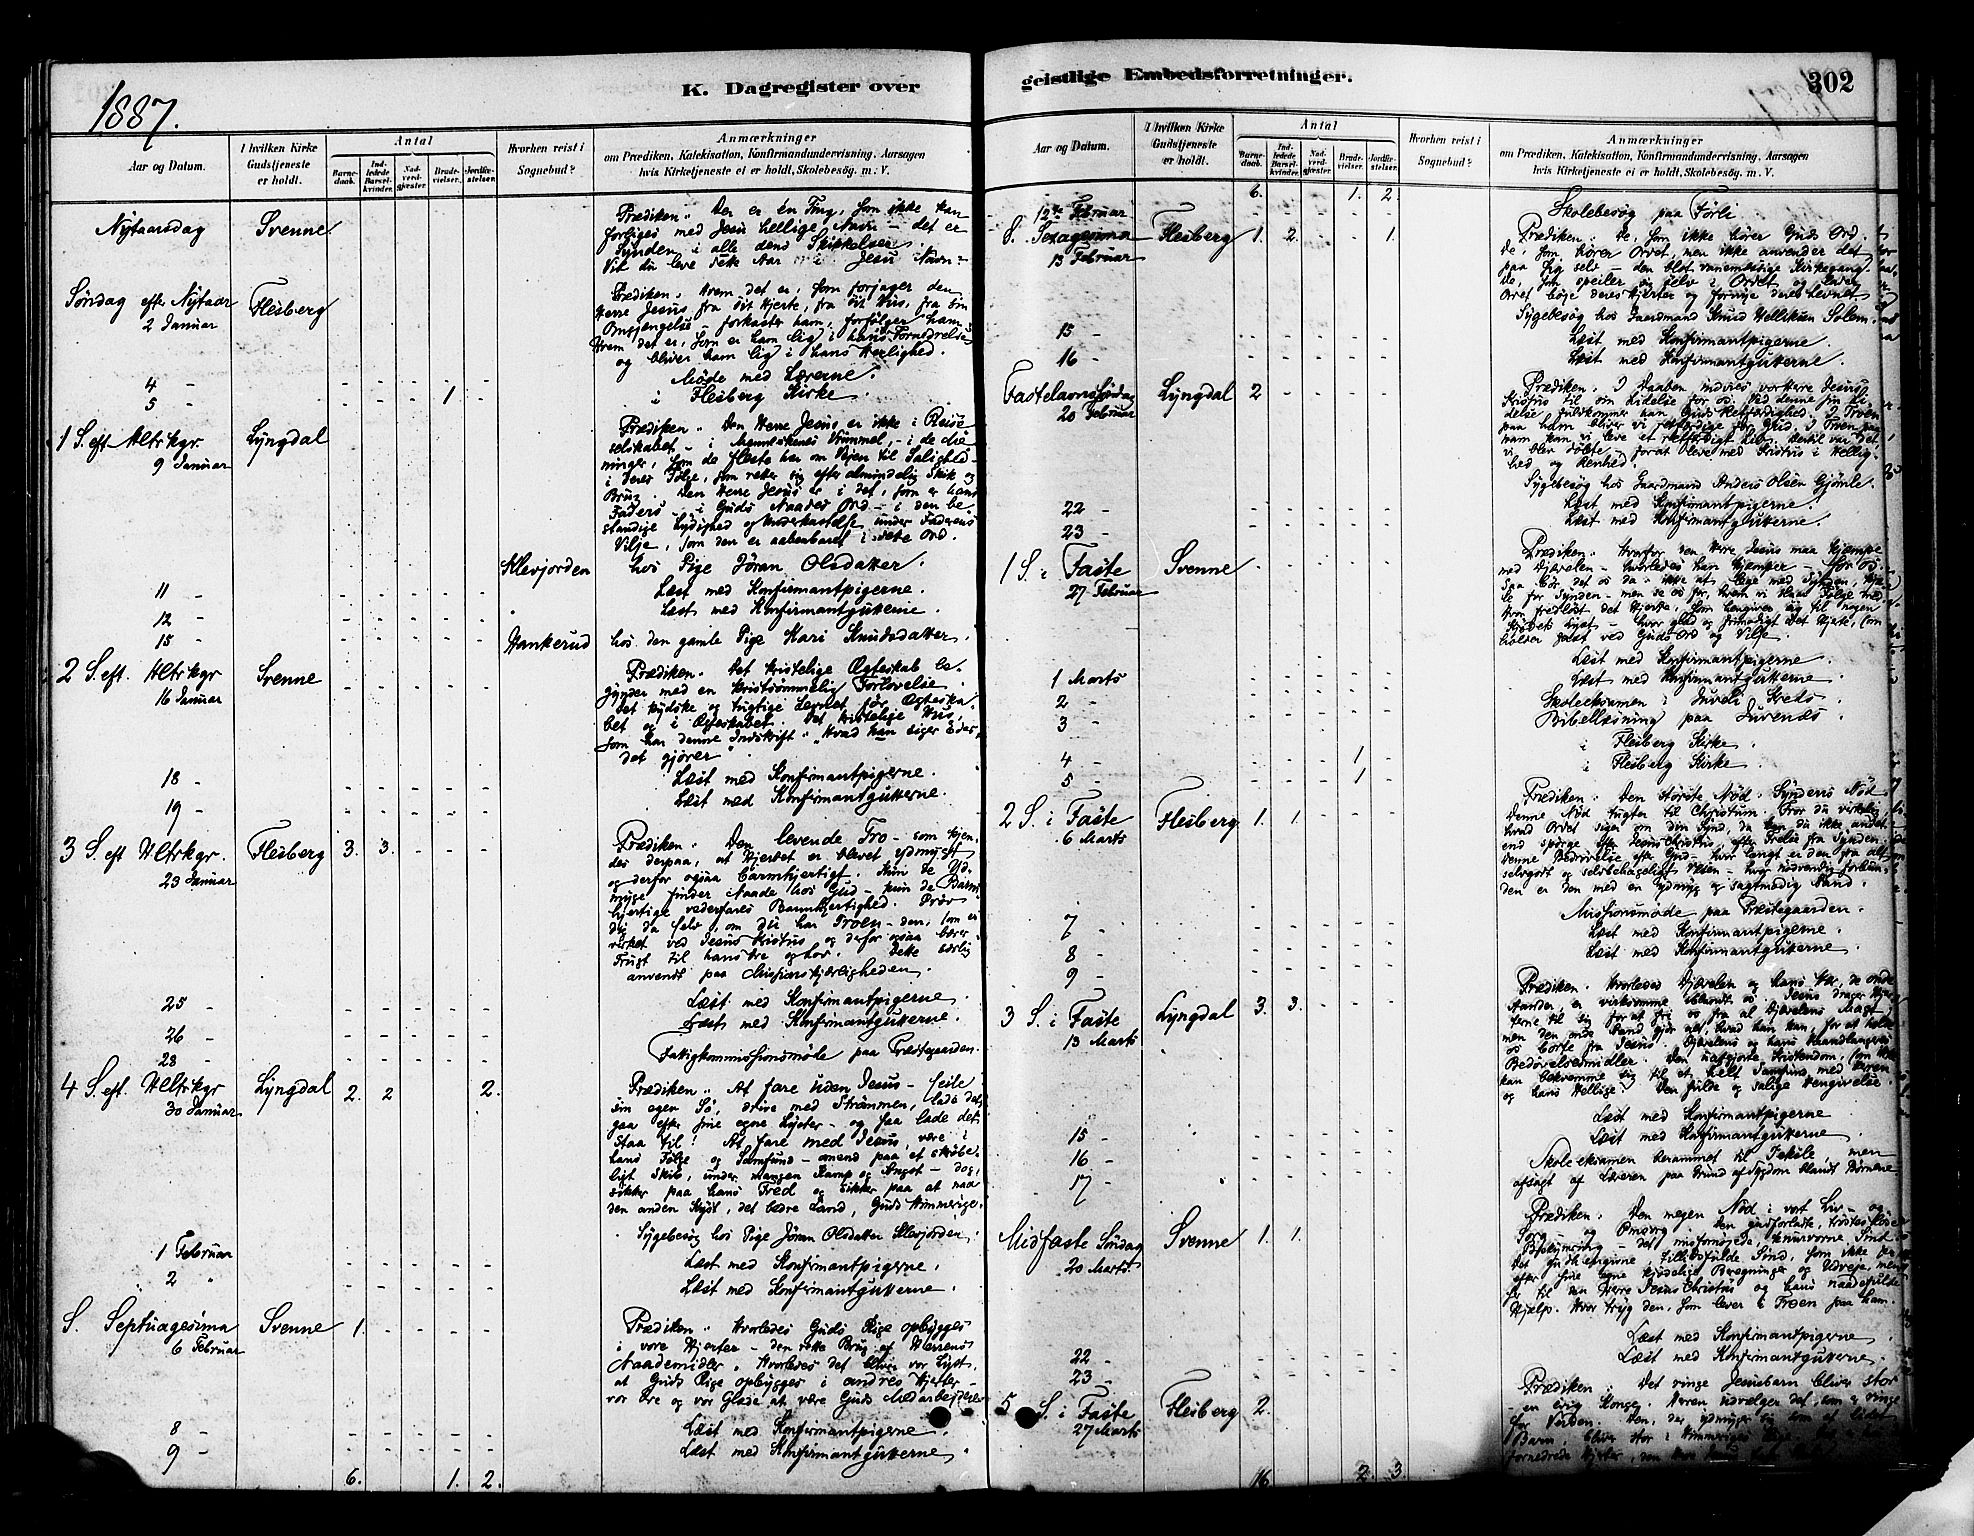 1887.
K. Dagregister over
Aar og Datum.
I hvilken Kirke Gudstjeneste er holdt.
Antal
Barnedaab.
Indledede Barselkvinder.
Nadverdgjæster.
Brudevielser.
Jordfæstelser.
Hvorhen reist i Sognebud?
Anmærkninger
om Prædiken, Katekisation, Konfirmandundervisning, Aarsagen
hvis Kirketjeneste ei er holdt, Skolebesøg. m. V.
Nytaarsdag Svenne
Prædiken: Der er én Ting, som ikke kan
forliges med Jesu hellige Navn - det er
Synden i alle dens Skikkelser.
Vil du leve dette Aar i Jesu Navn?
Søndag efter Nytaar Flesberg
2 Januar
Prædiken: Hvem det er, som forjager den
Herre Jesus fra sit Hjerte, fra sit Hus, fra sin
Omgjængelse - forkaster ham, forfølger ham -
Hvem det er, som er ham lig i hans Fornedrelse
og bliver ham lig i hans Herlighed.
4 - Møde med Lærerne.
5 - 1 i Flesberg Kirke.
1 S. eft Hltrkgr. Lyngdal
9 Januar
Prædiken: Den Herre Jesus er ikke i Reise
selskabet - i Menneskenes Vrimmel, - i de Me
ninger, som de fleste har om Vejen til Salighed -
i deres Følge, som retter sig efter almindelig Skik og
Brug. Den Herre Jesus er i det, som er hans
Faders - i Guds Naades Ord - i den be
standige Lydighed og Underkastelse under Faderens
Vilje, som den er aabenbaret i dette Ord.
Klevjorden hos Pige Jøran Olsdatter.
11 - Læst med Konfirmantpigerne.
12 - Læst med Konfirmantgutterne.
15 - Hankerud hos den gamle Pige Kari Knudsdatter.
2 S. eft. Hltrkgr Svenne
16 Januar
Prædiken: Det kristelige Ægteskab be-
gynder med en kristsømmelig Forlovelse.
Det kydske og tugtige Levnet før Ægteska
bet og i Ægteskabet. Det kristelige Hus,
som har denne Indskrift "Hvad han siger Eder,
det gjører"
18 - Læst med Konfirmantpigerne.
19 - Læst med Konfirmantgutterne.
3 S. eft Hltrkgr. Flesberg 3. 3.
23 Januar
Prædiken: Den levende Tro - som kjen
des derpaa, at Hjertet er blevet ydmygt
og derfor ogsaa barmhjertigt. Kun de Yd-
myge finder Naade hos Gud - kun de Barm
hjertige vederfares Barmhjertighed. Prøv
dig da selv, om du har Troen - den, som er
virket ved Jesus Kristus og derfor ogsaa bærer
Frugt til hans Ære og Lov. Dette særlig
anvendt paa Missionskjærligheden.
25 - Læst med Konfirmantpigerne.
26 - Læst med Konfirmantgutterne.
28 - Fattigkommissionsmøde paa Præstegaarden.
4 S. eft. Hltrkgr Lyngdal 2. 2 2.
30 Januar
Prædiken: At fare uden Jesus - seile
sin egen Sø, drive med Strømmen, lade det
gaa efter sine egne Lyster - og saa lade det
staa til! At fare med Jesus, være i
hans Følge og Samfund - omend paa et skrøbe-
ligt Skib, under mangen Kamp og Angst - dog
sikker paa hans Fred og sikker paa at naa
den anden Kyst, det bedre Land, Guds Himmerige.
Sygebesøg hos Pige Jøran Olsdatter Klevjorden.
1 Februar Læst med Konfirmantpigerne.
2 " Læst med Konfirmantgutterne.
S. Septuagesima Svenne 1.
6 Februar
Prædiken: Hvorledes Guds Rige opbygges
i vore Hjerter - den rette Brug af Herrens
Naademidler. Hvorledes det bliver vor Lyst,
at Guds Rige opbygges i andres Hjerter -
vor Ære og vor Glæde at være Guds Medarbejdere.
8 - Læst med Konfirmantpigerne.
9 - Læst med Konfirmantgutterne.
6. 1. 2.
geistlige Embedsforretninger.
302
Aar og Datum.
I hvilken Kirke Gudstjeneste er holdt.
Antal
Barnedaab.
Indledede Barselkvinder.
Nadverdgjæster.
Brudevielser.
Jordfæstelser.
Hvorhen reist i Sognebud?
Anmærkninger
om Prædiken, Katekisation, Konfirmandundervisning, Aarsagen
hvis Kirketjeneste ei er holdt, Skolebesøg. m. V.
6. 1. 2.
12te Februar Skolebesøg paa Førli
S. Sexagesima Flesberg 1. 2. 1.
13 Februar
Prædiken: De, som ikke hører Guds Ord.
De, som hører Ordet, men ikke anvender det
paa sig selv - den blot vanemæssige Kirkegang.
De, som speiler sig selv i Ordet og lader
Ordet bøje deres Hjerter og fornye deres Levnet
Sygebesøg hos Gaardmand Knud Helliksen Solem.
15 - Læst med Konfirmantpigerne.
16 - Læst med Konfirmantgutterne.
Fastelavns Søndag Lyngdal 2
20 Februar
Prædiken: I Daaben indvies vor Herre Jesus
Kristus til sin Lidelse for os. Ved denne sin Li
delse fuldkommer han Guds Retfærdighed. I Troen
paa ham bliver vi retfærdige for Gud. I Troen paa
ham kan vi leve et retfærdigt Liv. Dertil var det
vi blev døbte - for at leve med Kristus i Hellig-
hed og Renhed.
Sygebesøg hos Gaardmand Anders Olsen Gjømle.
22 - Læst med Konfirmantpigerne.
23 - Læst med Konfirmantgutterne.
1 S. i Faste Svenne
27 Februar
Prædiken: Hvorfor den Herre Jesus maa kjæmpe
med Djævelen - hvorledes han kjæmper - for os.
Saa bør det os da ikke at lege med Synden,
for Synden - men se os for, hvem vi slaar Følge med.
Hvor fredløst det Hjerte, som hengiver sig til nogen
Kjødets Lyst - hvor glad og frimodigt det Hjerte, som
holder fast ved Guds Ord og Vilje.
1 Marts Læst med Konfirmantpigerne.
2 - Læst med Konfirmantgutterne.
3 - Skoleeksamen i Juveli Kreds.
Bibellæsning paa Juvenes.
4 - 1 i Flesberg Kirke.
5 - 1 i Flesberg Kirke.
2 S. i Faste Flesberg 1. 1
6 Marts
Prædiken: Den største Nød: Syndens Nød
Denne Nød tugter til Christum. Tror du virkelig
hvad Ordet siger om din Synd, da kan du ikke andet
end spørge efter Jesus Christus, efter Frelse fra Synden.
Denne Bedrøvelse efter Gud - hvor langt er den fra alt
selvgodt og selvbehageligt Væsen - hvor nødvendig forbun-
den er den med en ydmyg og sagtmodig Aand.
7 - Missionsmøde paa Præstegaarden.
8 - Læst med Konfirmantpigerne.
9 - Læst med Konfirmantgutterne.
3 S. i Faste Lyngdal 3. 3.
13 Marts
Prædiken: Hvorledes Djævelen og hans Hær, de onde
Aander er virksomme iblandt os. Jesus drager Hjer
terne til sig for at fri os fra al Djævelens Magt,
men den onde Aand gjør alt, hvad han kan, for at holde
os borte fra Jesus. Djævelens og hans Haandlangeres
Bedøvelsesmidler. Den uafgjorte Kristendom, som ikke
kan bekvemme sig til et helt Samfund med Herren
og hans Hellige. Den fulde og salige Hengivelse.
15 - Læst med Konfirmantpigerne
16 - Læst med Konfirmantgutterne.
17 - Skoleeksamen berammet til men
afsagt af Læreren paa Grund af Sygdom blandt Børnene
Midfaste Søndag Svenne 1. 1.
20 Marts.
Prædiken: Den megen Nød i vort Liv - og
Sorg og Omsorg. Den gudforladte, trøstesløse
Bekymring - det misfornøjede, knurvorne Sind.
Det gudhengivne, tillidsfulde Sind, som ikke
efter sine egne kjødelige Beregninger og Udveje, men
ser til den Herre Jesus Christus og hans naadefulde
Hjælp. Hvor tryg den, som lever i Troen paa ham.
22 - Læst med Konfirmantpigerne
23 - Læst med Konfirmantgutterne.
5 S. i Faste Flesberg 2.
27 Marts
Prædiken: Det ringe Jesusbarn bliver stor
- en evig Konge. Herren udvælger det, som er ringe
for Verden. Den, der ydmyger sig som et lidet
Barn bliver stor i Himmeriges Rige.
fornedrede Hjerter,
16 2. 3.